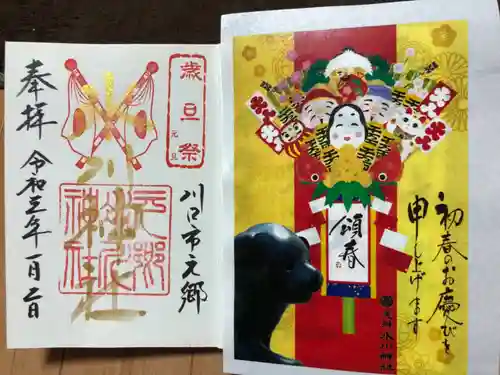 奉拝
令和三年 一月二日
氷川神社
元郷
氷川
神社
歳旦祭
元旦
川口市元郷
頌春
初春のお慶びを
申し上げます
元郷氷川神社